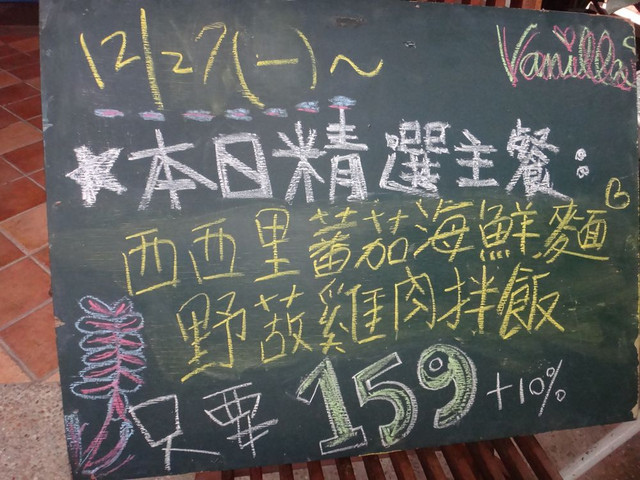 12/27(一)~
Vanilla's
★本日精選主餐:
西西里蕃茄海鮮麵
野菇雞肉拌飯
只要159+10%